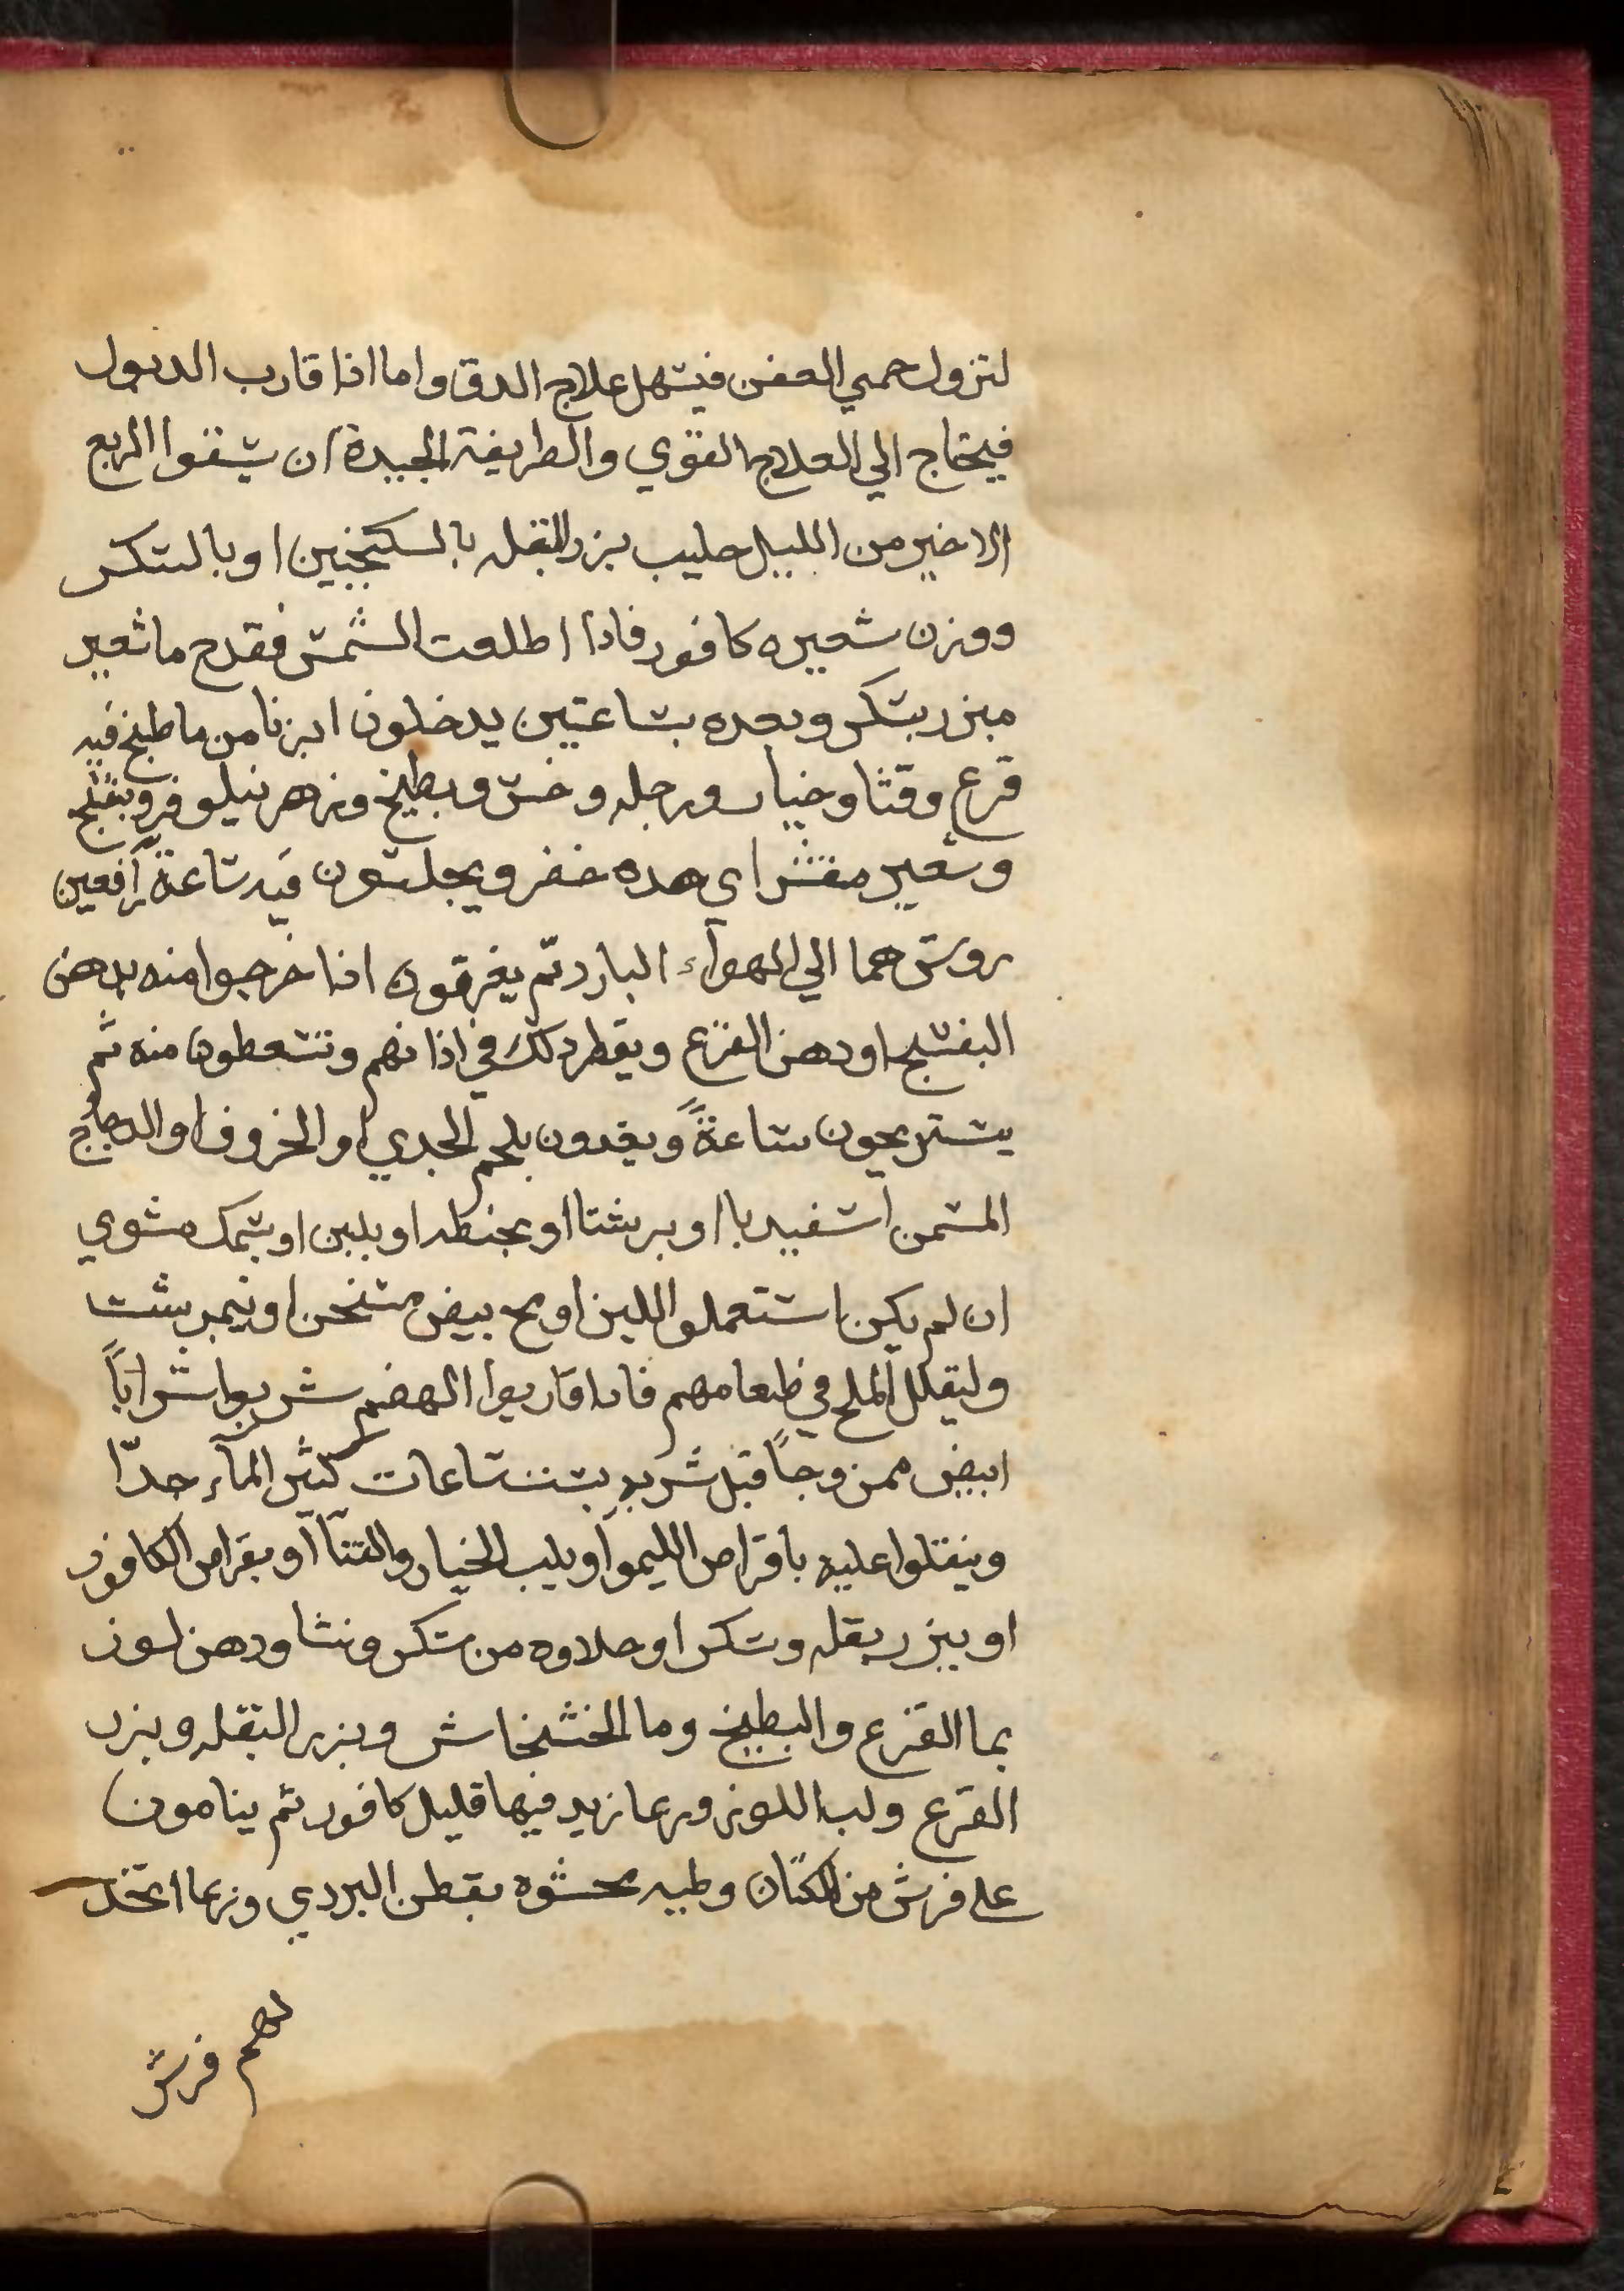 لتزول حمي العفن فيسهل علاج الدق واما اذا قارب الدبول
فيحتاج الي العلاج القوي والطريقة الجيدة ان يسقوا الربع
الاخير من الليل حليب بزر البقله بالسكنجبين او بالسكر
ووزن شعيره كافور فاذا اطلعت الشمس فقدح ما شعير
مبزر بسكر وبعده بساعتين يدخلون ابزنا من ما طبخ فيه
قرع وقثا وخيار ورجله وخس وبطيخ وزهر نيلوفر وبنفسج
وشعير مقشر اي هده حضر ويجلسون فيه ساعة رافعين
روسهما الي الهوآء البارد ثم يغرقون اذا خرجوا منه بدهن
البنفسج او دهن القرع ويقطر دلك في اذانهم وتسعطون منه ثم
يستريحون ساعةً ويغدون بلحم الجدي او الخروف او الدجاج
المسمن اسفيدبا او بريشتا او بحنطه او بلبن او بسمك مشوي
ان لم يكن استعملوا اللبن او مح بيض مسخن او نيمبرشت
وليقلل الملح في طعامهم فادا قاربوا الهضم شربوا شراباً
ابيض ممزوجاً قبل شربه بست ساعات كثير المآء جدّا
وينقلوا عليه باقراص الليموا او بلب الخيار والقثآ او بقراص الكافور
او ببزر بقله وسكر او حلاوه من سكر ونشا ودهن لوز
بما القرع والبطيخ وما الخشخاش وبزر البقله وبزر
القرع ولب اللوز وربما زيد فيها قليل كافور ثم ينامون
علي فرش من الكتان وطيه محشوه بقطن البردي وربما اتخد
لهم فرش